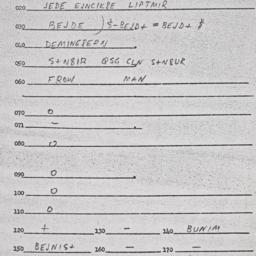 020 JEDE EINCIKPE LIPTMIR
030 BEJDE )$-BEJD+ = BEJD+ $
040 DEMINGĐEPN
050 S+NBIR QSG CLN S+NBUR
060 FROW MAN
070 0
071 - .
080
090 0 .
100 0
110 0
120 + 130 - 140 BUNIM
150 BEJNIS+ 160 - 170 -